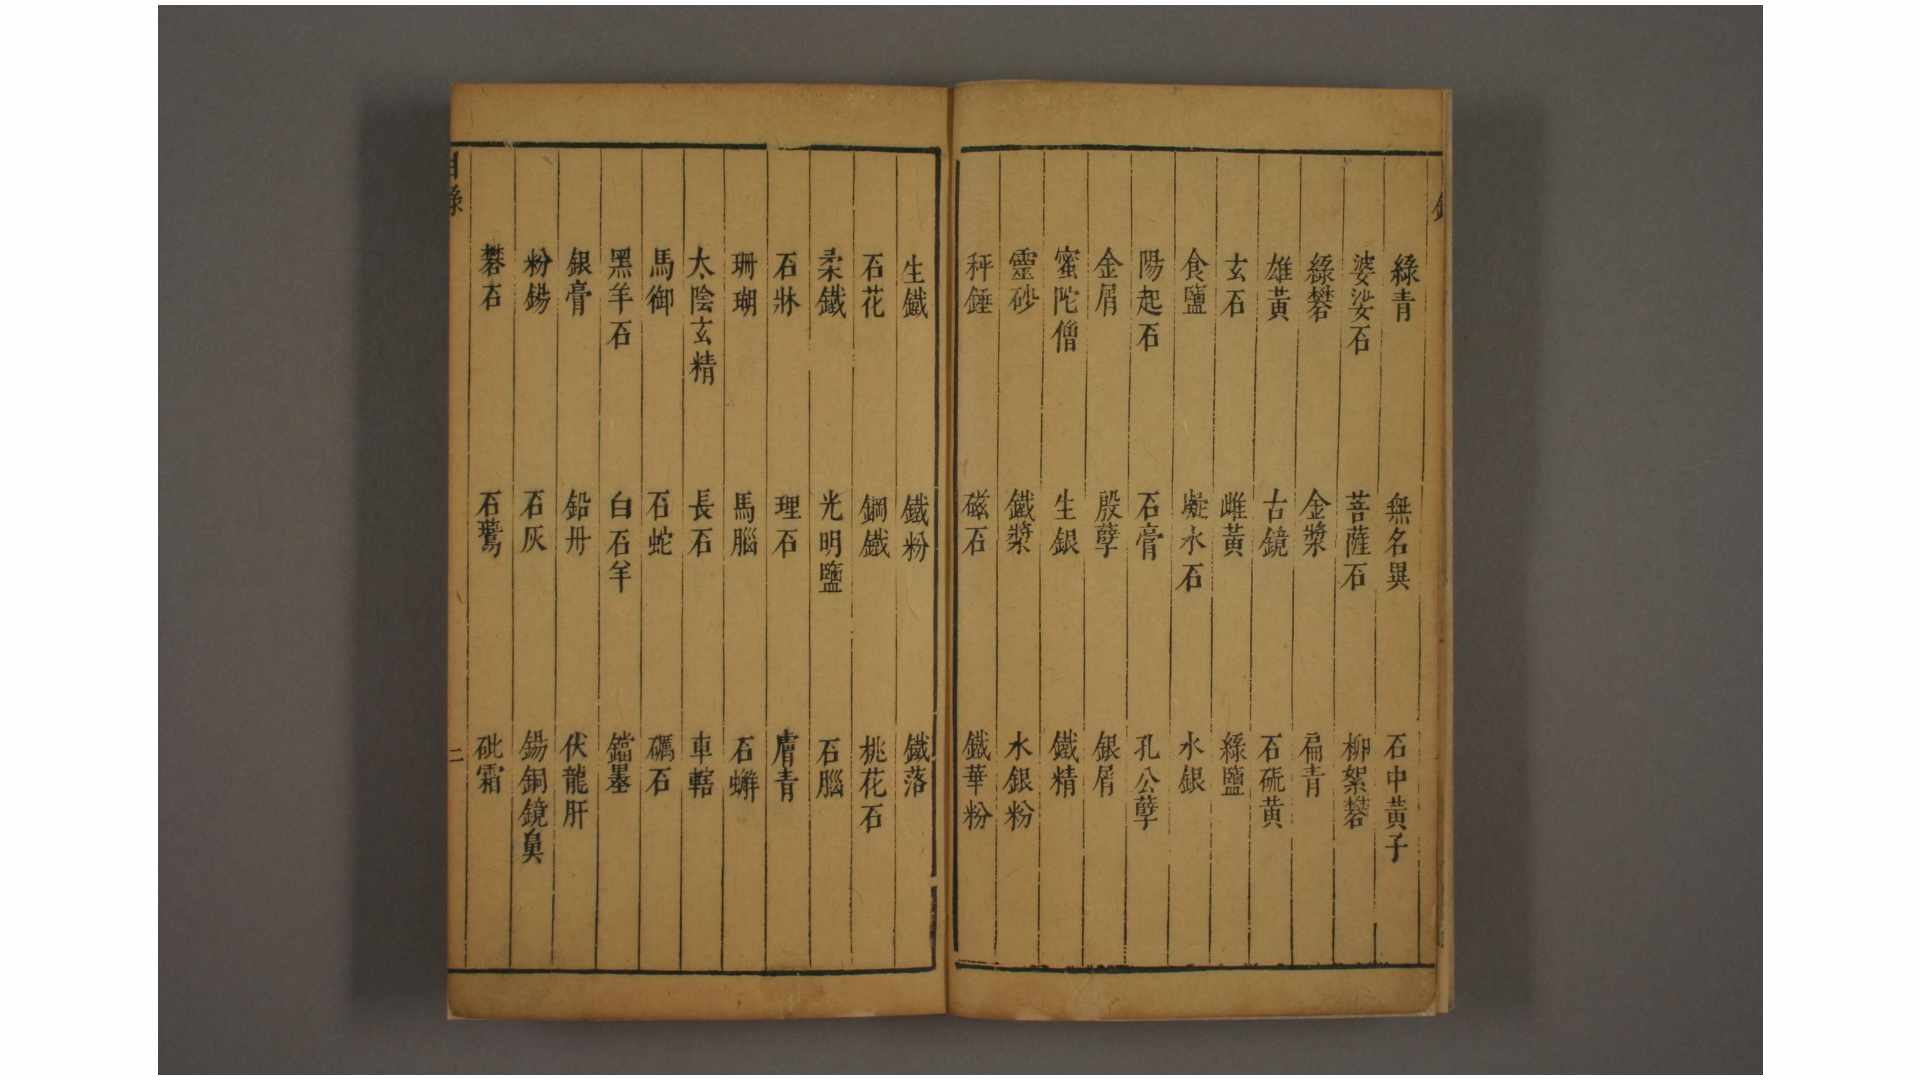 綠青 無名異 石中黃子
婆娑石 菩薩石 柳絮礬
綠礬 金漿 扁青
雄黃 古鏡 石硫黃
玄石 雌黃 綠鹽
食鹽 凝水石 水銀
陽起石 石膏 孔公孽
金屑 殷孽 銀屑
蜜陀僧 生銀 鐵精
靈砂 鐵漿 水銀粉
秤錘 磁石 鐵華粉
生鐵 鐵粉 鐵落
石花 鋼鐵 桃花石
柔鐵 光明鹽 石腦
石牀 理石 膚青
珊瑚 馬腦 石蠏
太陰玄精 長石 車轄
馬御 石蛇 礪石
黑羊石 白石羊 鐺墨
銀膏 鉛丹 伏龍肝
粉錫 石灰 錫銅鏡鼻
礬石 石鷰 砒霜
目錄
二